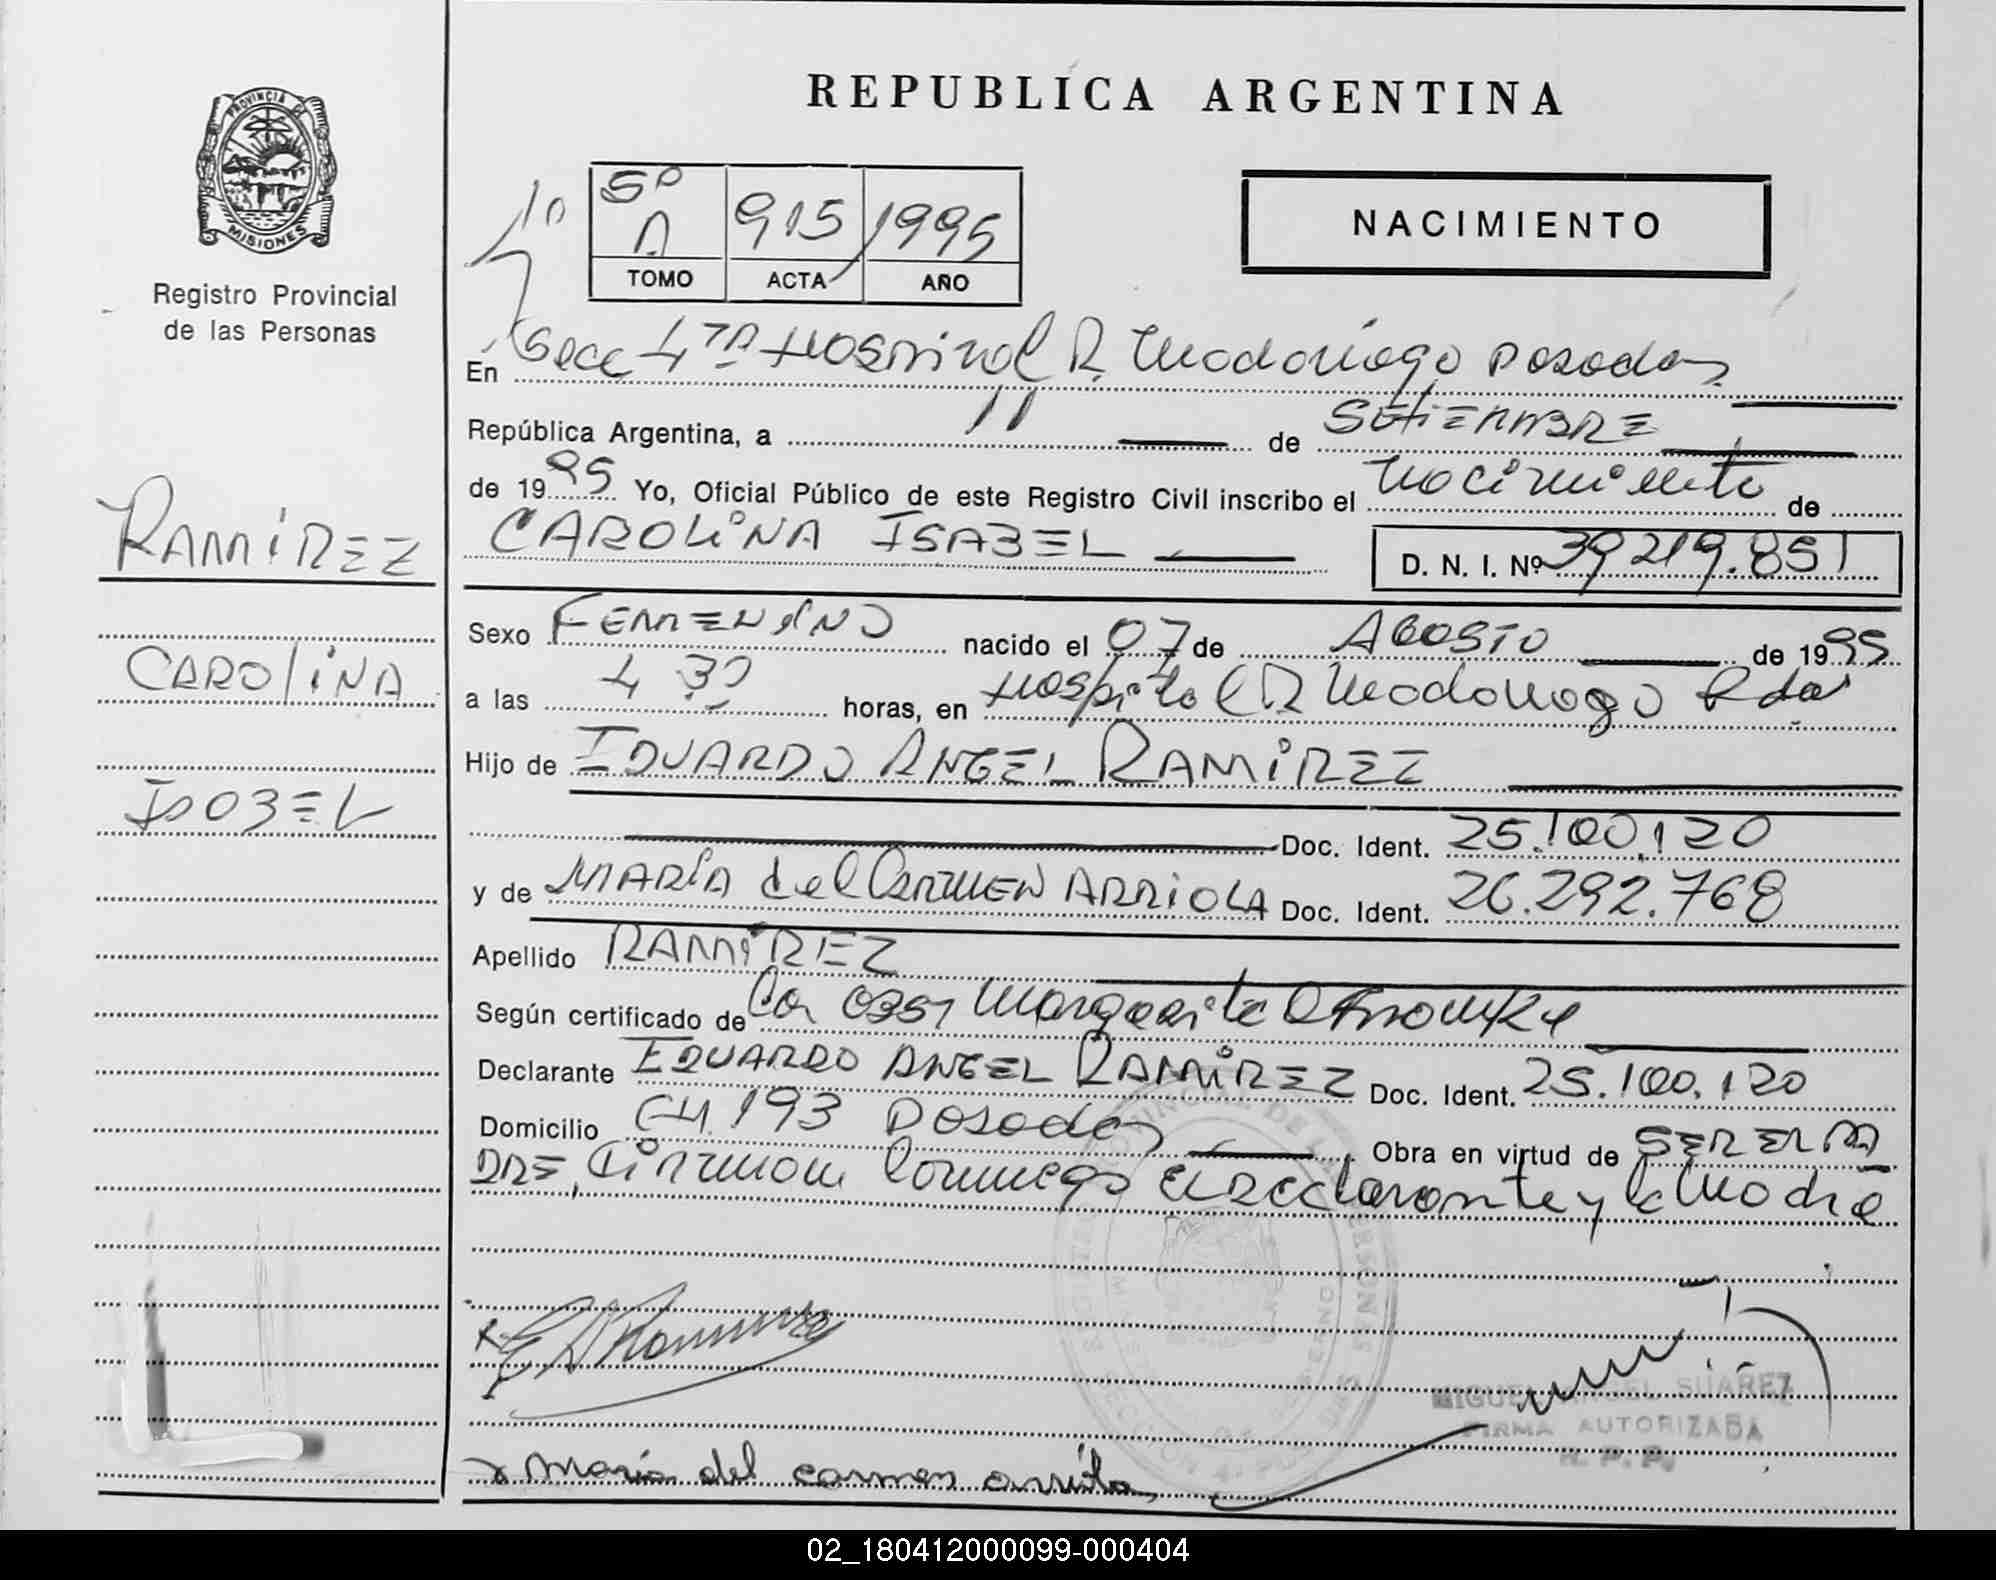 REPUBLICA ARGENTINA
PROVINCIA DE
MISIONES
Registro Provincial
de las Personas
5º
A 915 1995
TOMO ACTA AÑO
NACIMIENTO
En Secc 4ta Hospital R. Madariaga Posadas
República Argentina, a 11 de SETIEMBRE
de 1995 Yo, Oficial Público de este Registro Civil inscribo el nacimiento de
CAROLINA ISABEL D. N. I. Nº 39219.851
RAMIREZ
CAROLINA
ISABEL
Sexo FEMENINO nacido el 07 de AGOSTO de 1995
a las 4 30 horas, en Hospital R Madariaga Pdas
Hijo de EDUARDO ANGEL RAMIREZ
Doc. Ident. 25.100.120
y de MARIA del CARMEN ARRIOLA Doc. Ident. 26.292.768
Apellido RAMIREZ
Según certificado de Margarita
Declarante EDUARDO ANGEL RAMIREZ Doc. Ident. 25.100.120
Domicilio CH.193 Posadas Obra en virtud de SER EL PA
DRE, Firman conmigo el declarante y la madre
MIGUEL ANGEL SUAREZ
FIRMA AUTORIZADA
R. P. P.
x maria del carmen arriola
02_180412000099-000404